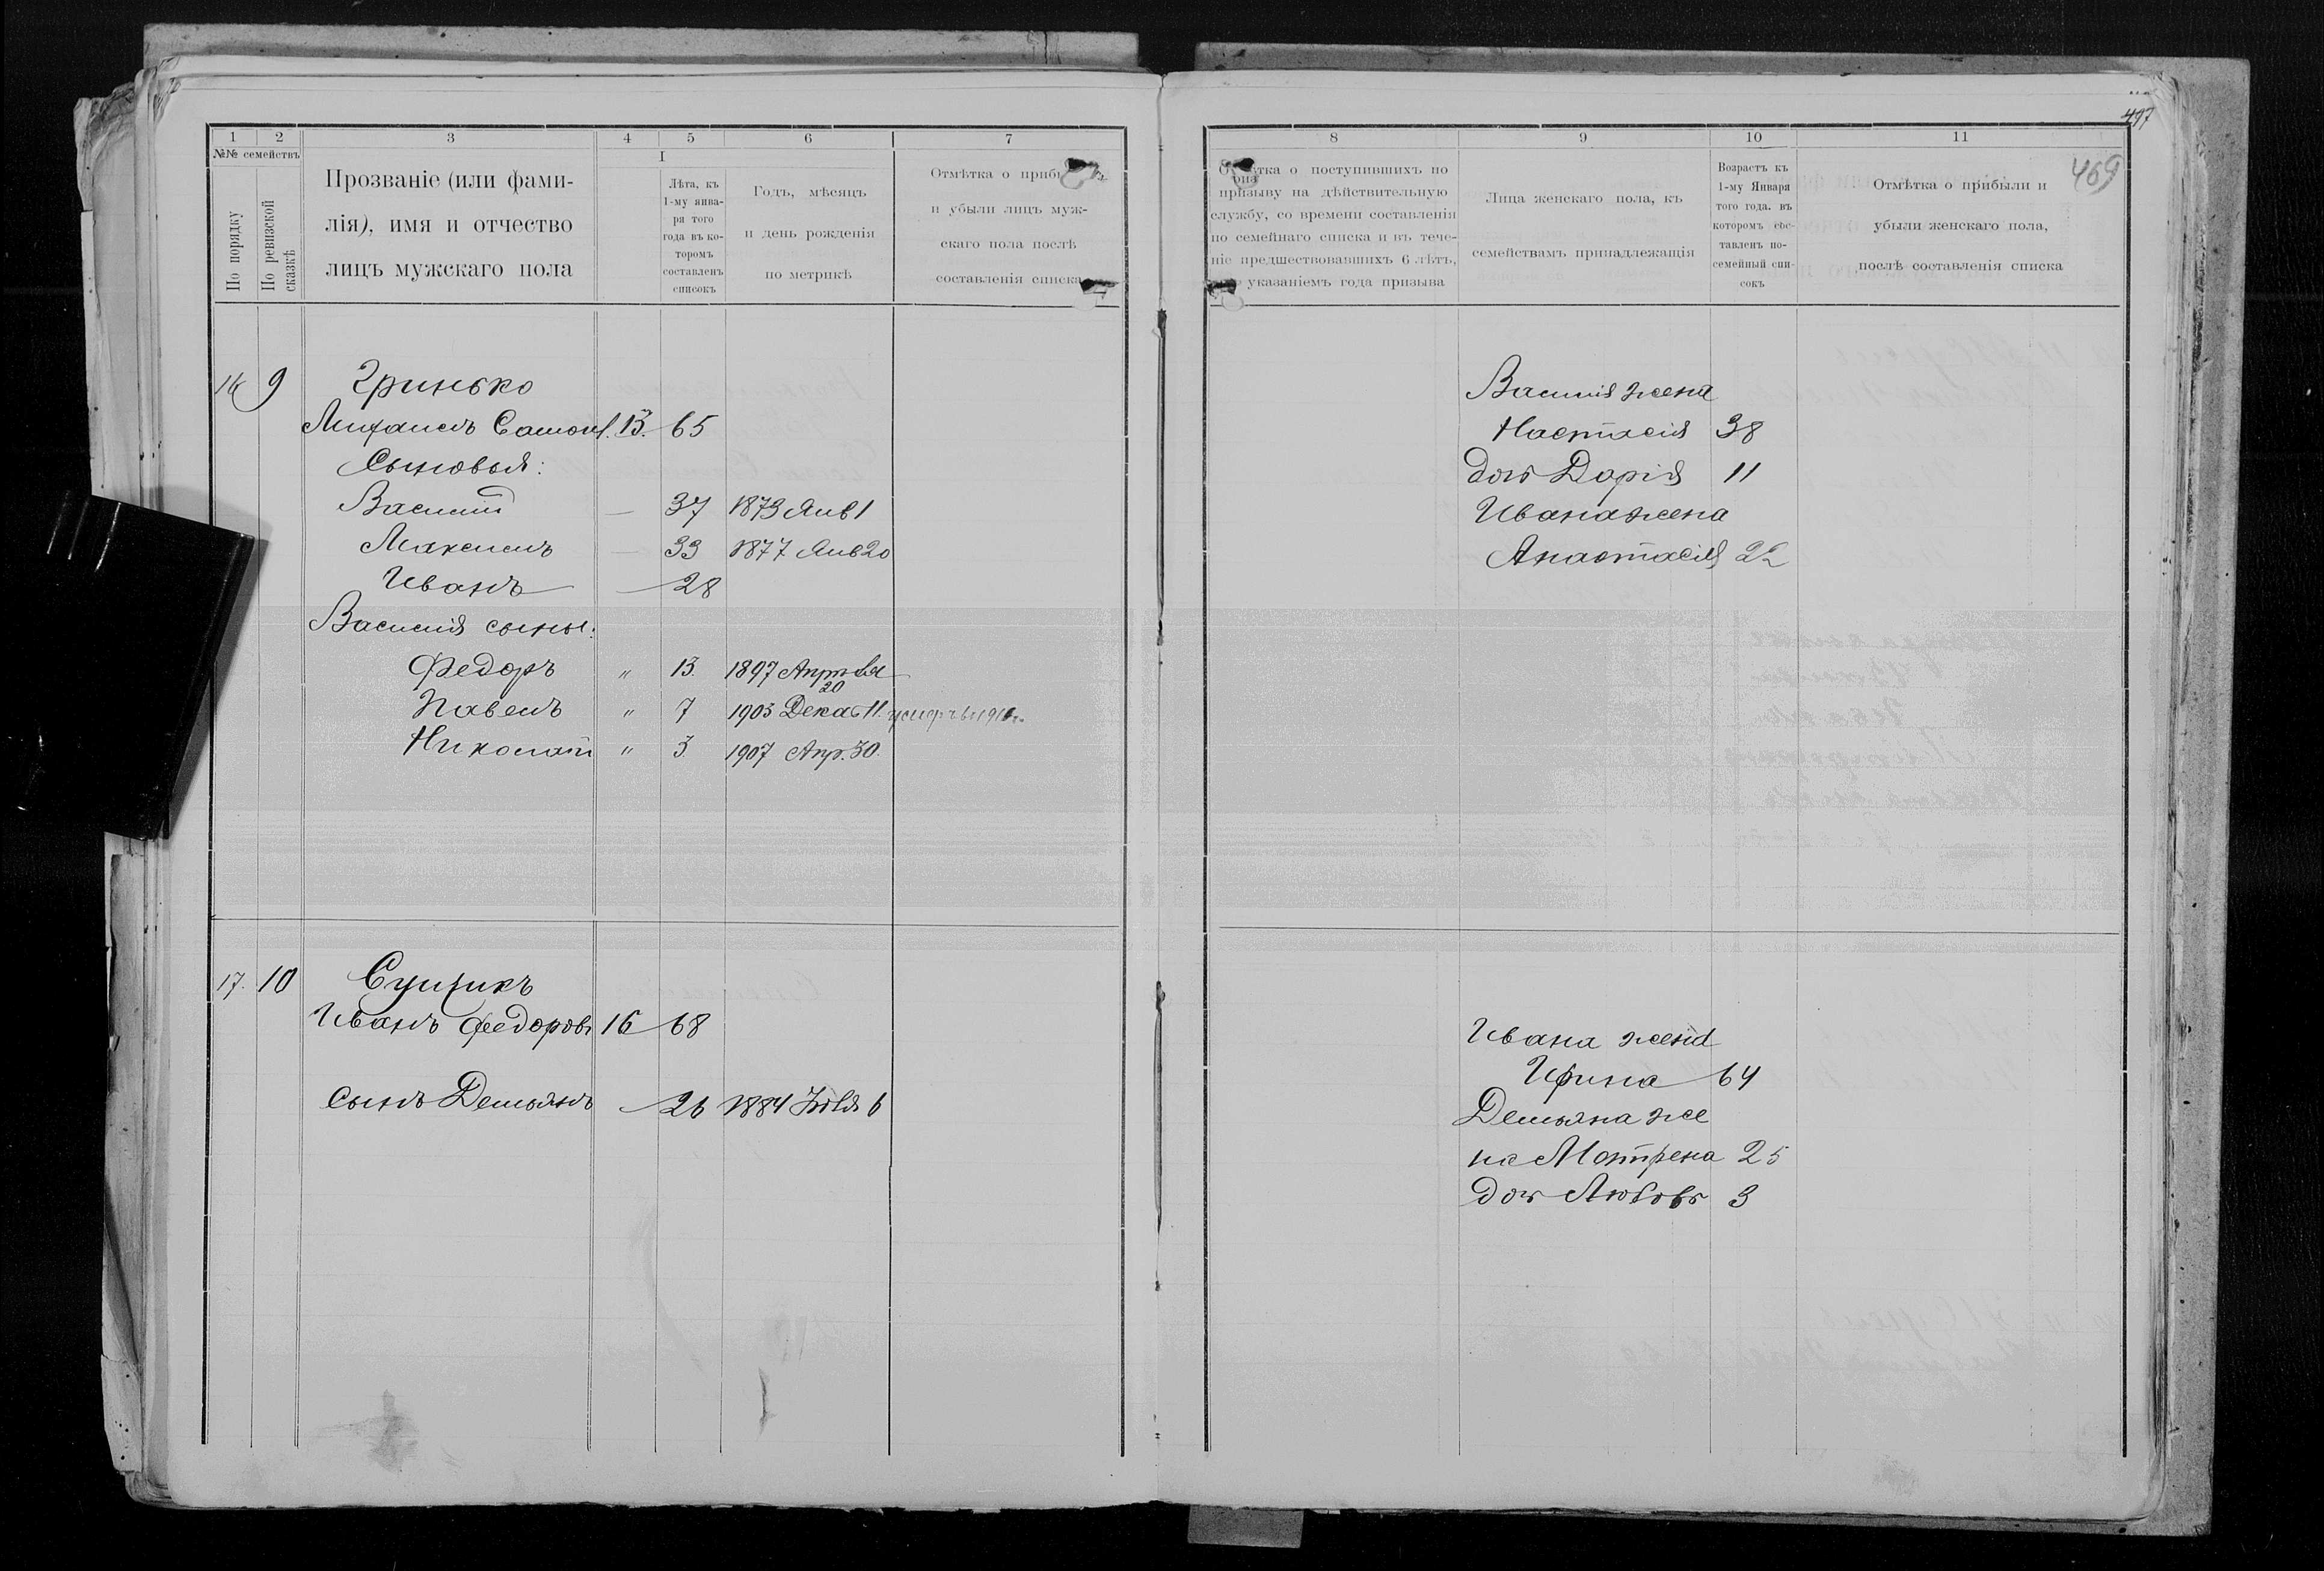 1 2 3 4 5 6 7
№№ семействъ
По порядку
По ревизской сказкѣ
Прозваніе (или фами-
лія), имя и отчество
лицъ мужскаго пола
I
Лѣта, къ
1-му янва-
ря того
года въ ко-
торомъ
составленъ
списокъ
Годъ, мѣсяцъ
и день рожденія
по метрикѣ
Отмѣтка о
и убыли лицъ муж-
скаго пола послѣ
составленія списка
16 9 Гринько
Михаилъ Самои 13. 65
Сыновья:
Василій — 37 1873 Янв 1
Максимъ — 33 1877 Янв 20
Иванъ — 28
Василія сыны:
Федоръ " 13. 1897 Апрѣля
20
Павелъ " 7 1903 Декаб 11.
Николай " 3. 1907 Апр. 30.
17. 10 Сущикъ
Иванъ Федоровъ 16 68
сынъ Демьянъ — 26 1884 Іюля 6
497
469
8 9 10 11
о поступившихъ по
призыву на дѣйствительную
службу, со времени составленія
по семейнаго списка и въ тече-
ніе предшествовавшихъ 6 лѣтъ,
указаніемъ года призыва
Лица женскаго пола, къ
семействамъ принадлежащія
Возрастъ къ
1-му Января
того года. въ
которомъ сос-
тавленъ по-
семейный спи-
сокъ
Отмѣтка о прибыли и
убыли женскаго пола,
послѣ составленія списка
Василія жена
Настасія 38
дочь Дарія 11
Ивана жена
Анастасія 22
Ивана жена
Ирина 64
Демьяна же
на Мотрена 25
дочь Любовь 3